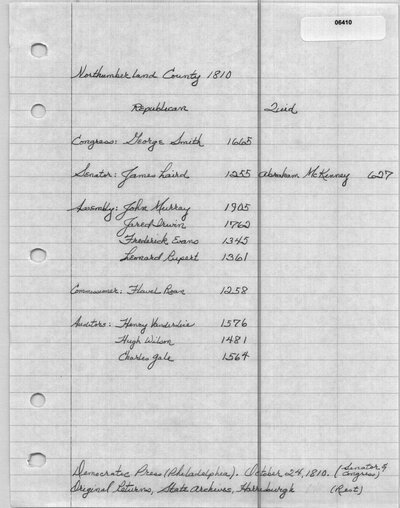 06410
Northumberland County 1810
Republican Quid
Congress: George Smith 1665
Senator: James Laird 1255 Abraham McKinney 627
Assembly: John Murray 1905
Jared Irwin 1762
Frederick Evans 1345
Leonard Rupert 1361
Commissioner: Flavel Roan 1258
Auditors: Henry Vanderslice 1576
Hugh Wilson 1481
Charles Gale 1564
Democratic Press (Philadelphia). October 24, 1810. (Senator & Congress)
Original Returns, State Archives, Harrisburgh (Rest)